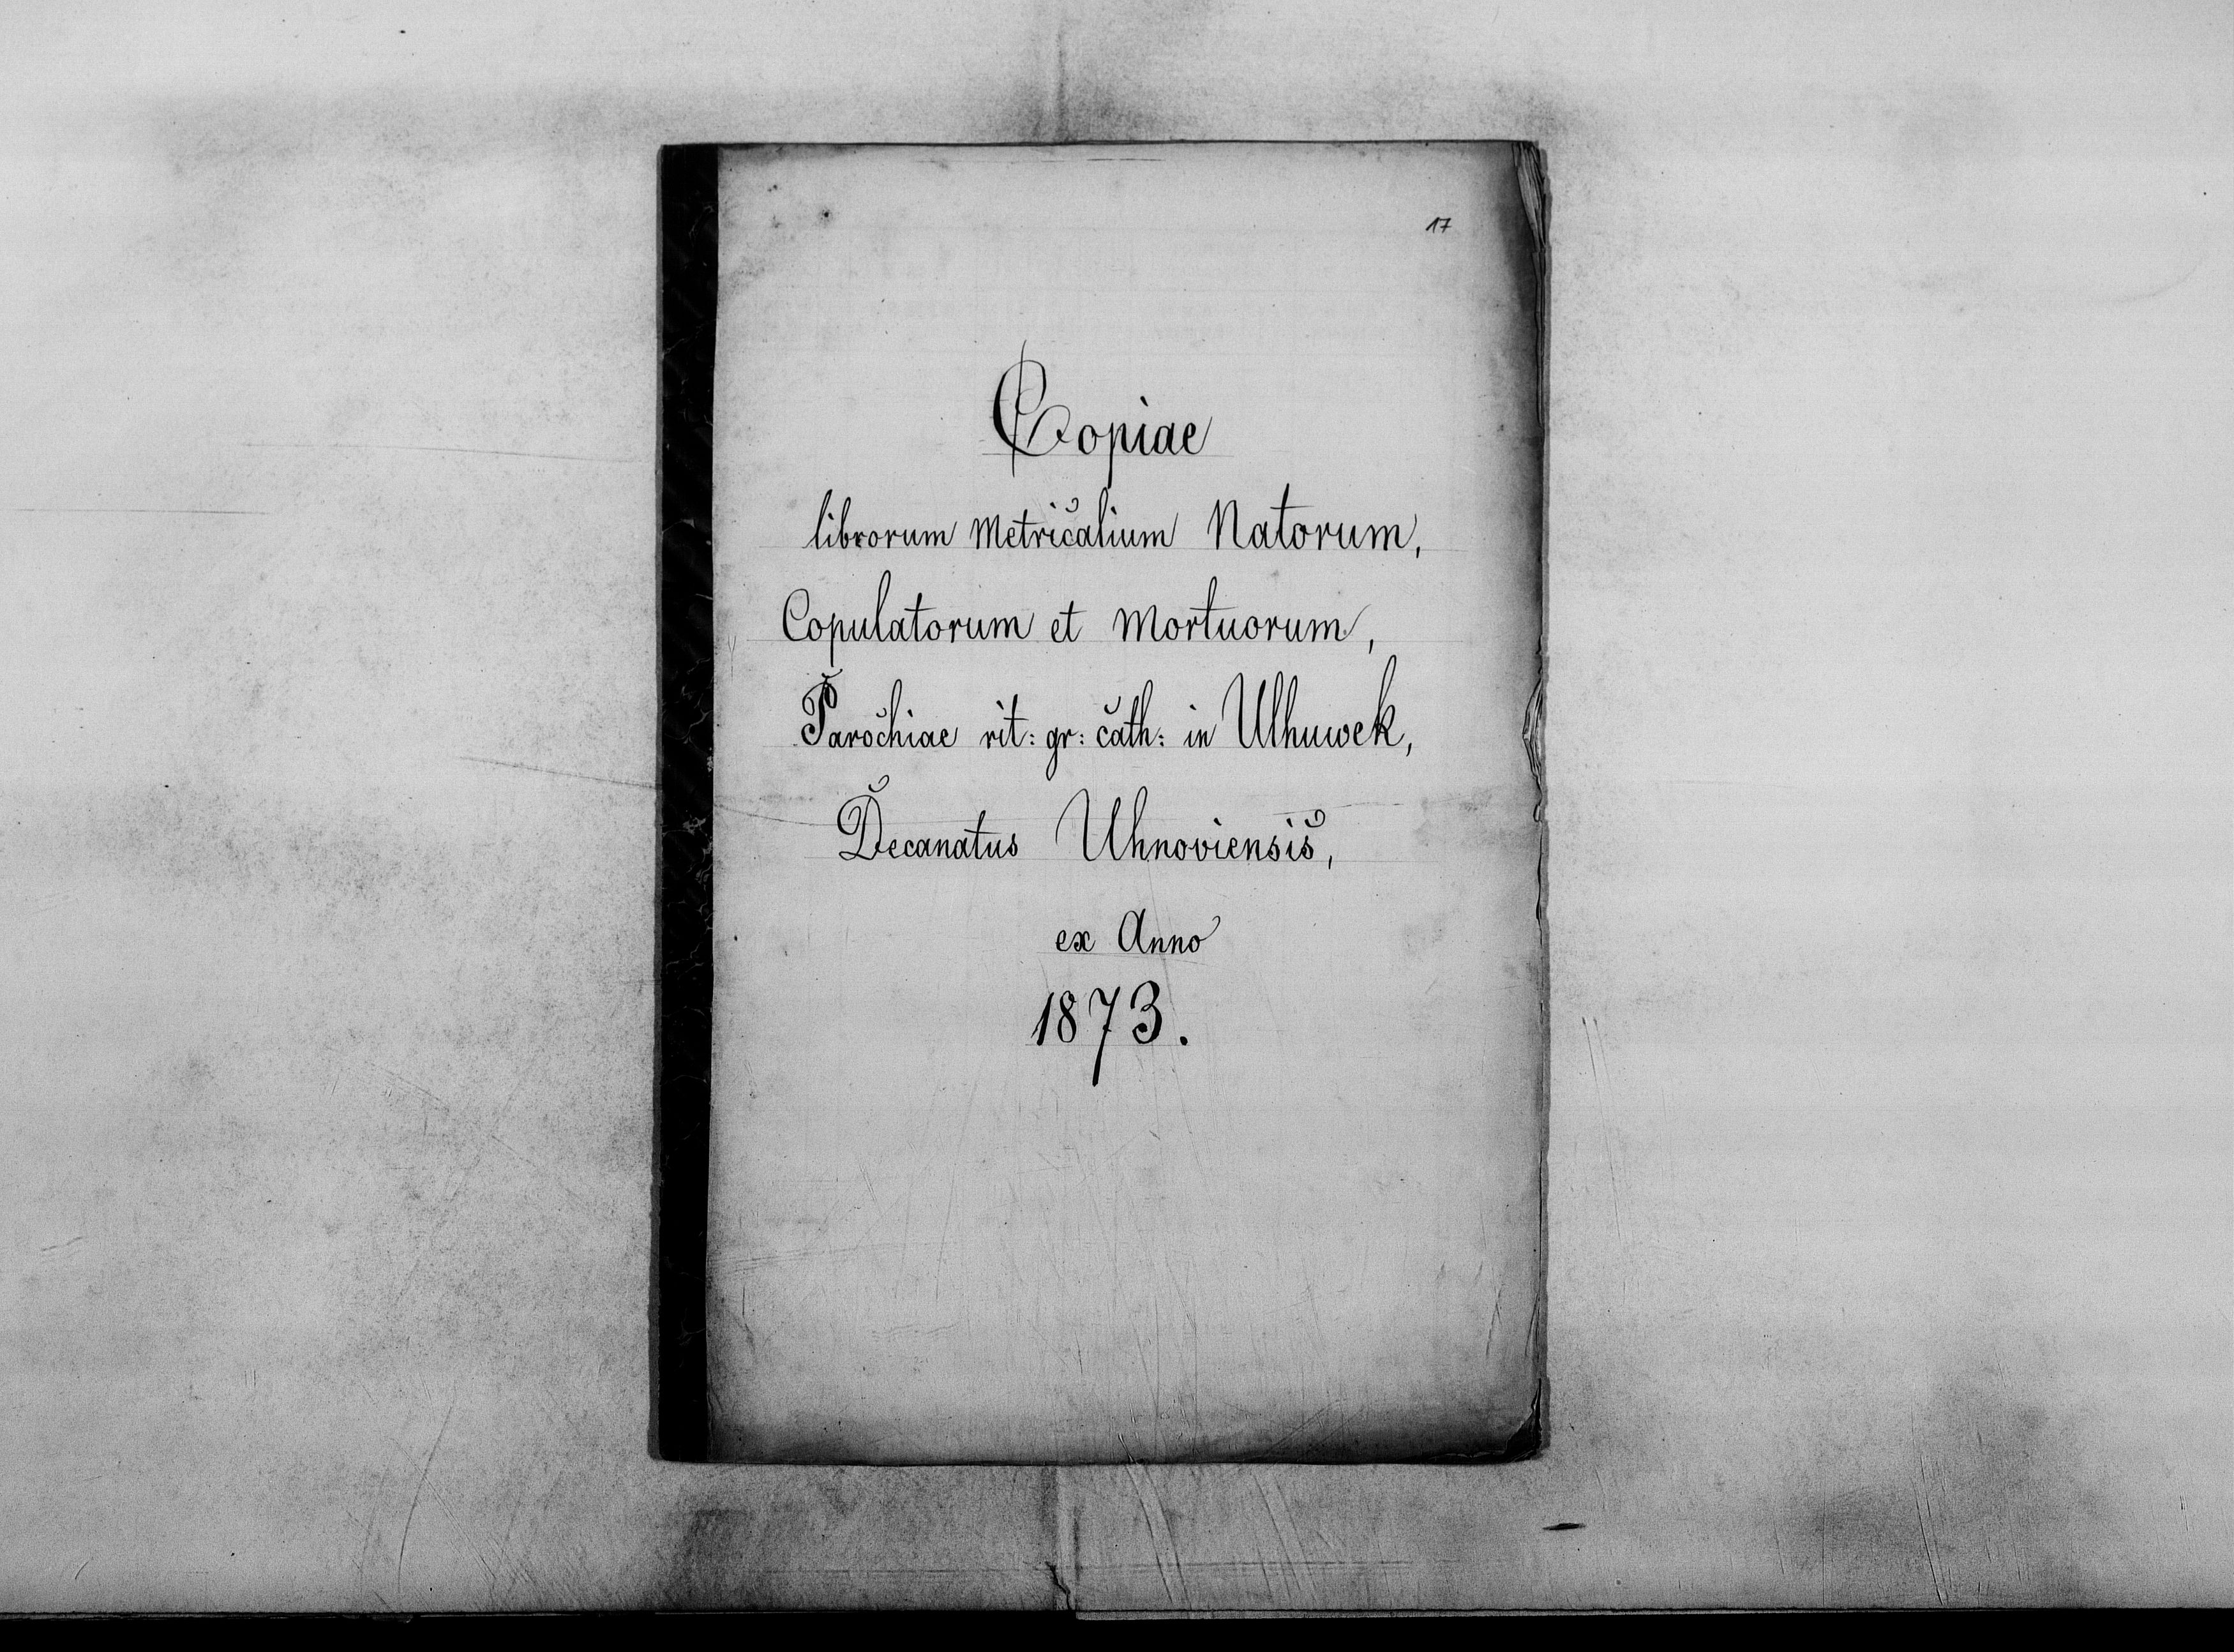 17
Copiae
librorum Metricalium Natorum,
Copulatorum et Mortuorum,
Parochiae rit: gr: cath: in Ulhuwek,
Decanatus Uhnoviensis,
ex Anno
1873.